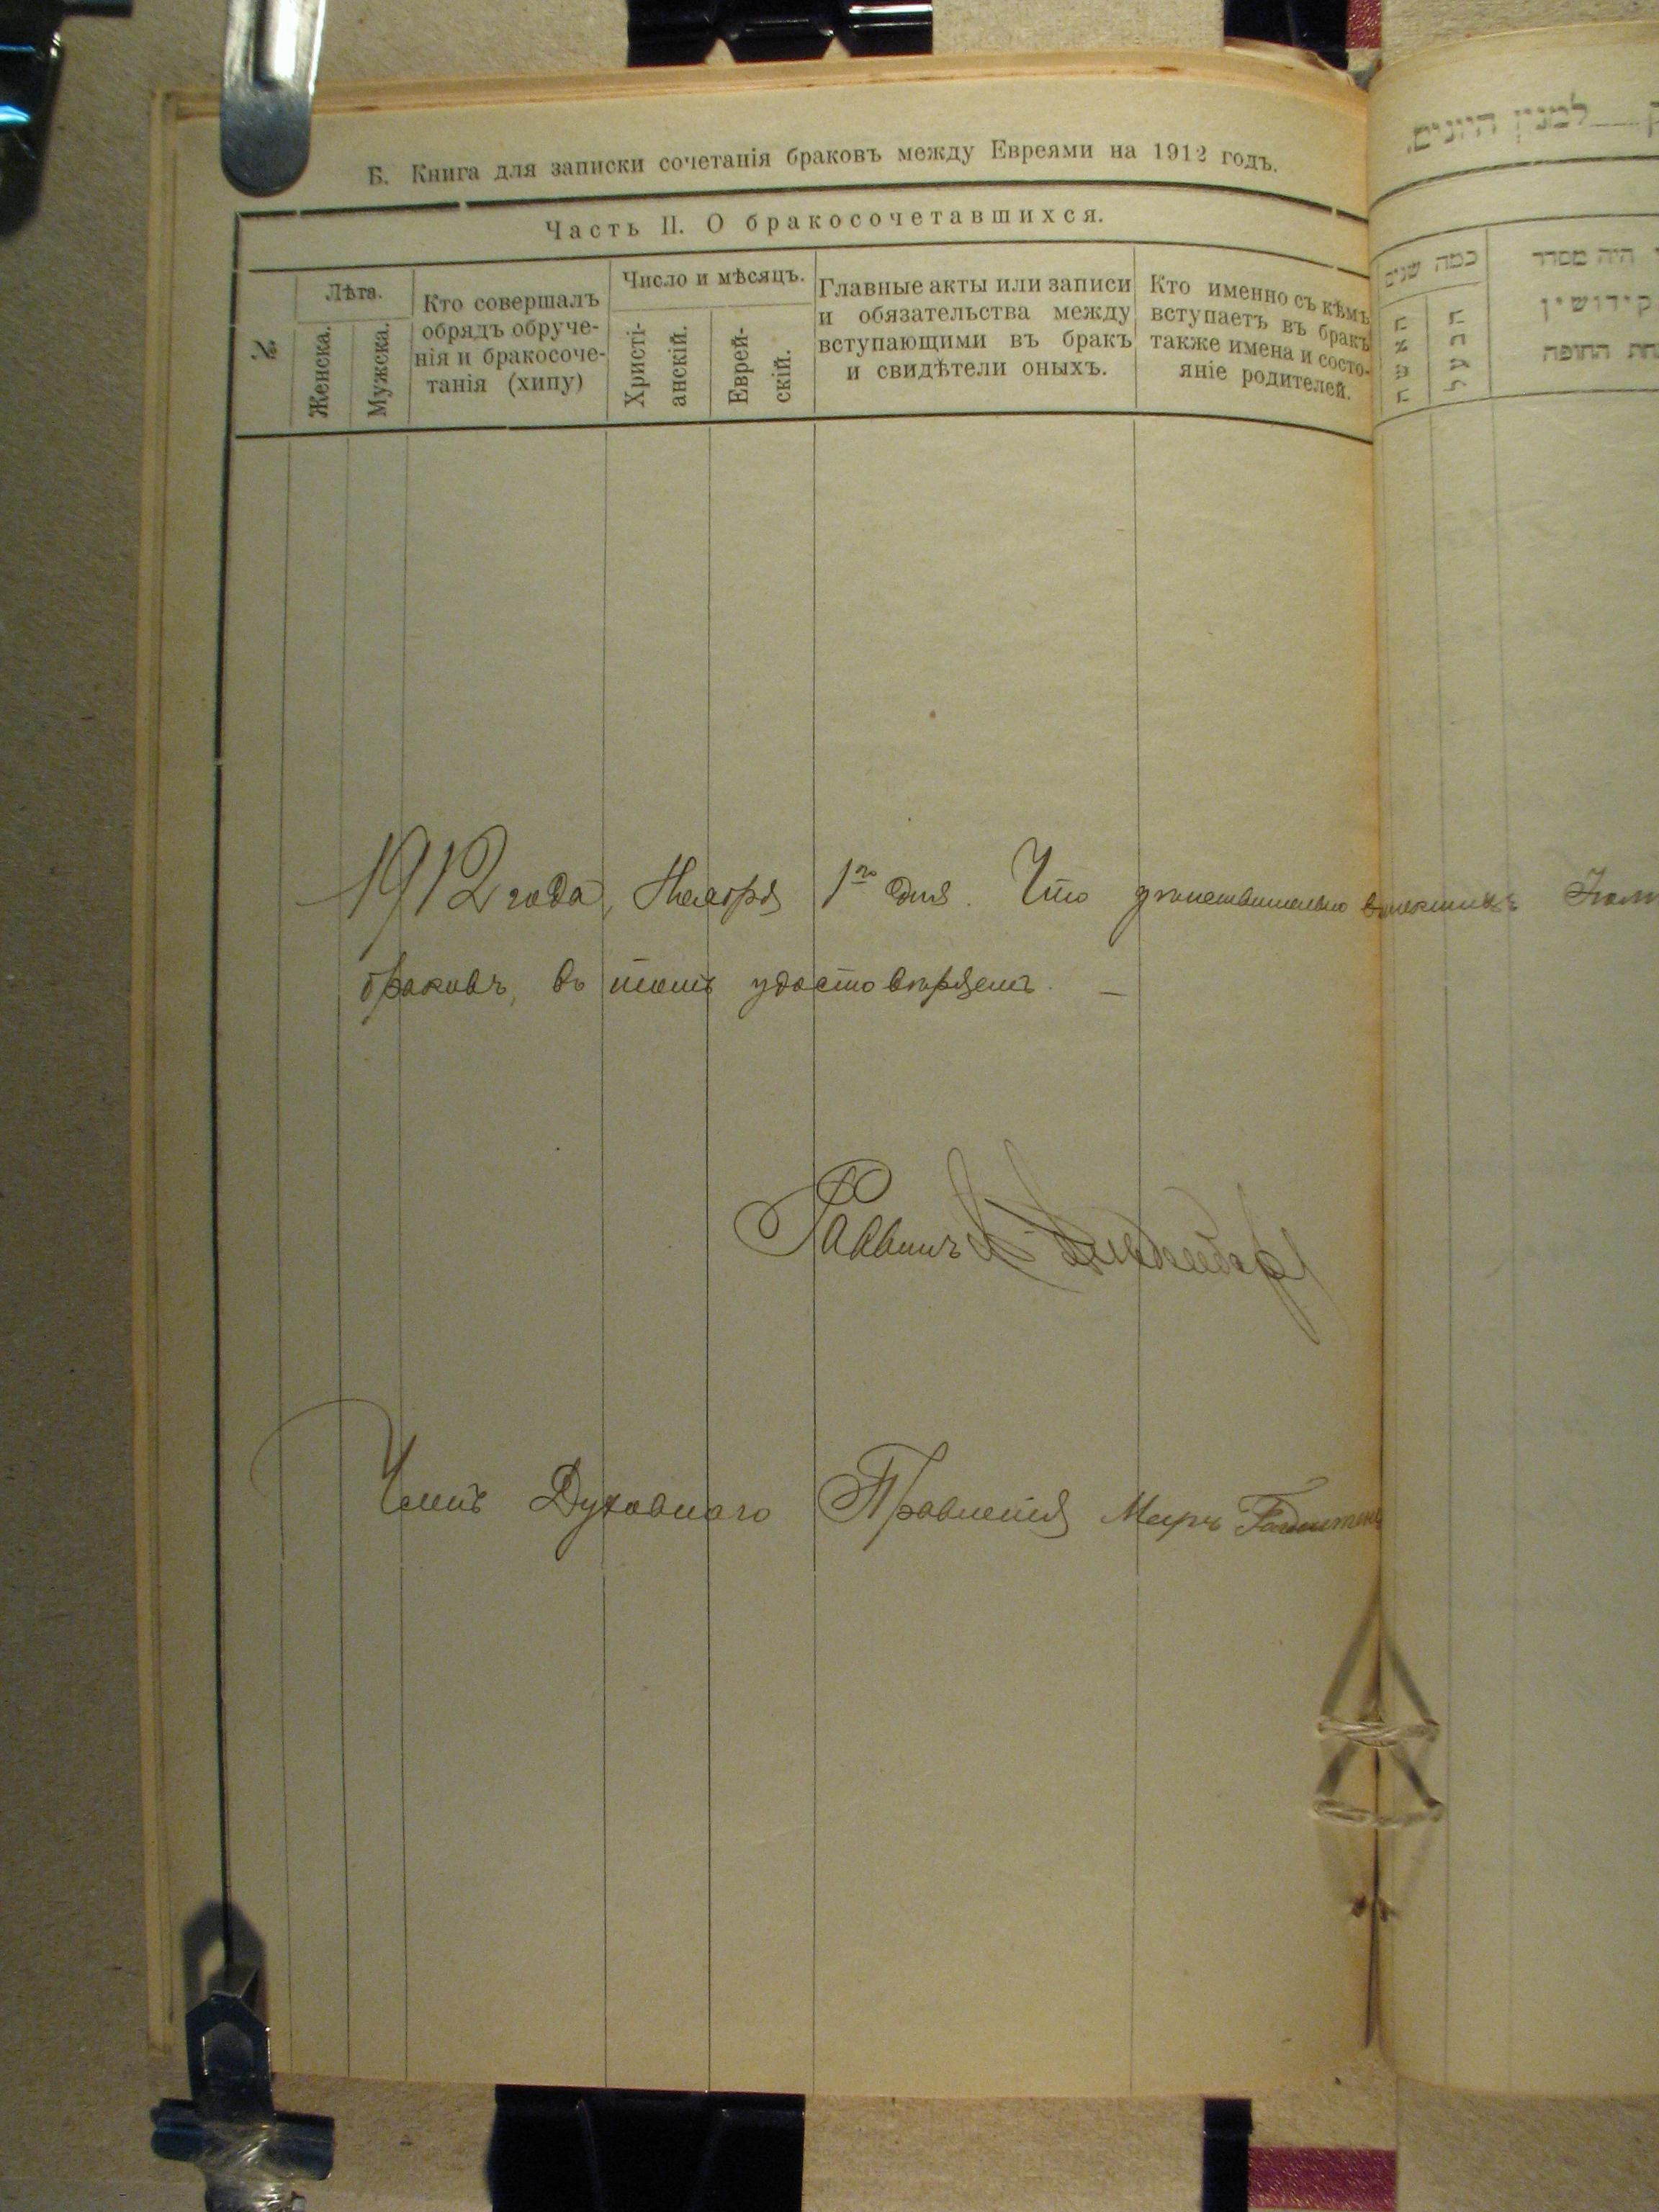 Б. Книга для записки сочетанія браковъ между Евреями на 1912 годъ.
Часть II. О бракосочетавшихся.
№
Лѣта.
Женска.
Мужска.
Кто совершалъ
обрядъ обруче-
нія и бракосоче-
танія (хипу)
Число и мѣсяцъ.
Христі-
анскій.
Еврей-
скій.
Главные акты или записи
и обязательства между
вступающими въ бракъ
и свидѣтели оныхъ.
Кто именно съ кѣмъ
вступаетъ въ бракъ
также имена и состо-
яніе родителей.
למנין היונים.
כמה שנים
האשה
הבעל
היה מסדר
קידושין
החופה
1912 года, Ноября 1го дня. Что
браковъ, въ томъ удостовѣряемъ. —
Раввинъ
Членъ Духовнаго Правленія Меиръ